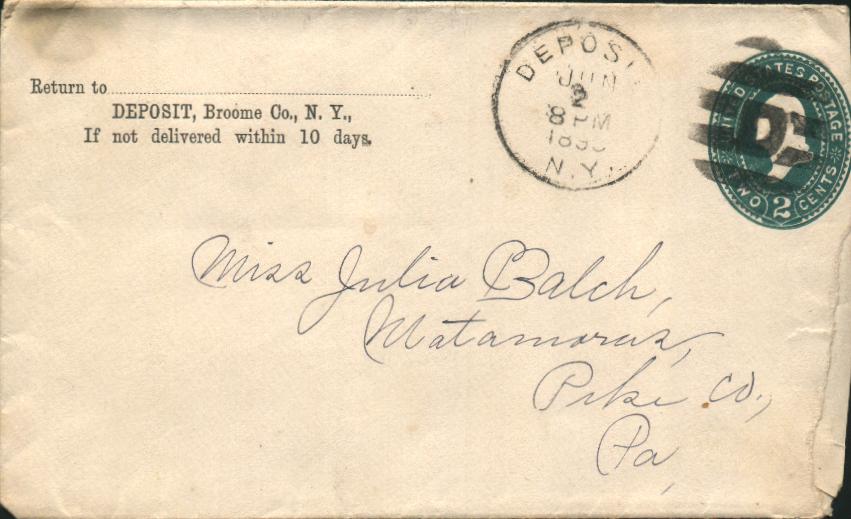 Return to
DEPOSIT, Broome Co., N. Y.,
If not delivered within 10 days.
DEPOSI
JUN
2
8 PM
N.Y.
UNITED STATES POSTAGE
TWO 2 CENTS
Miss Julia Balch,
Matamoras,
Pike Co.,
Pa,